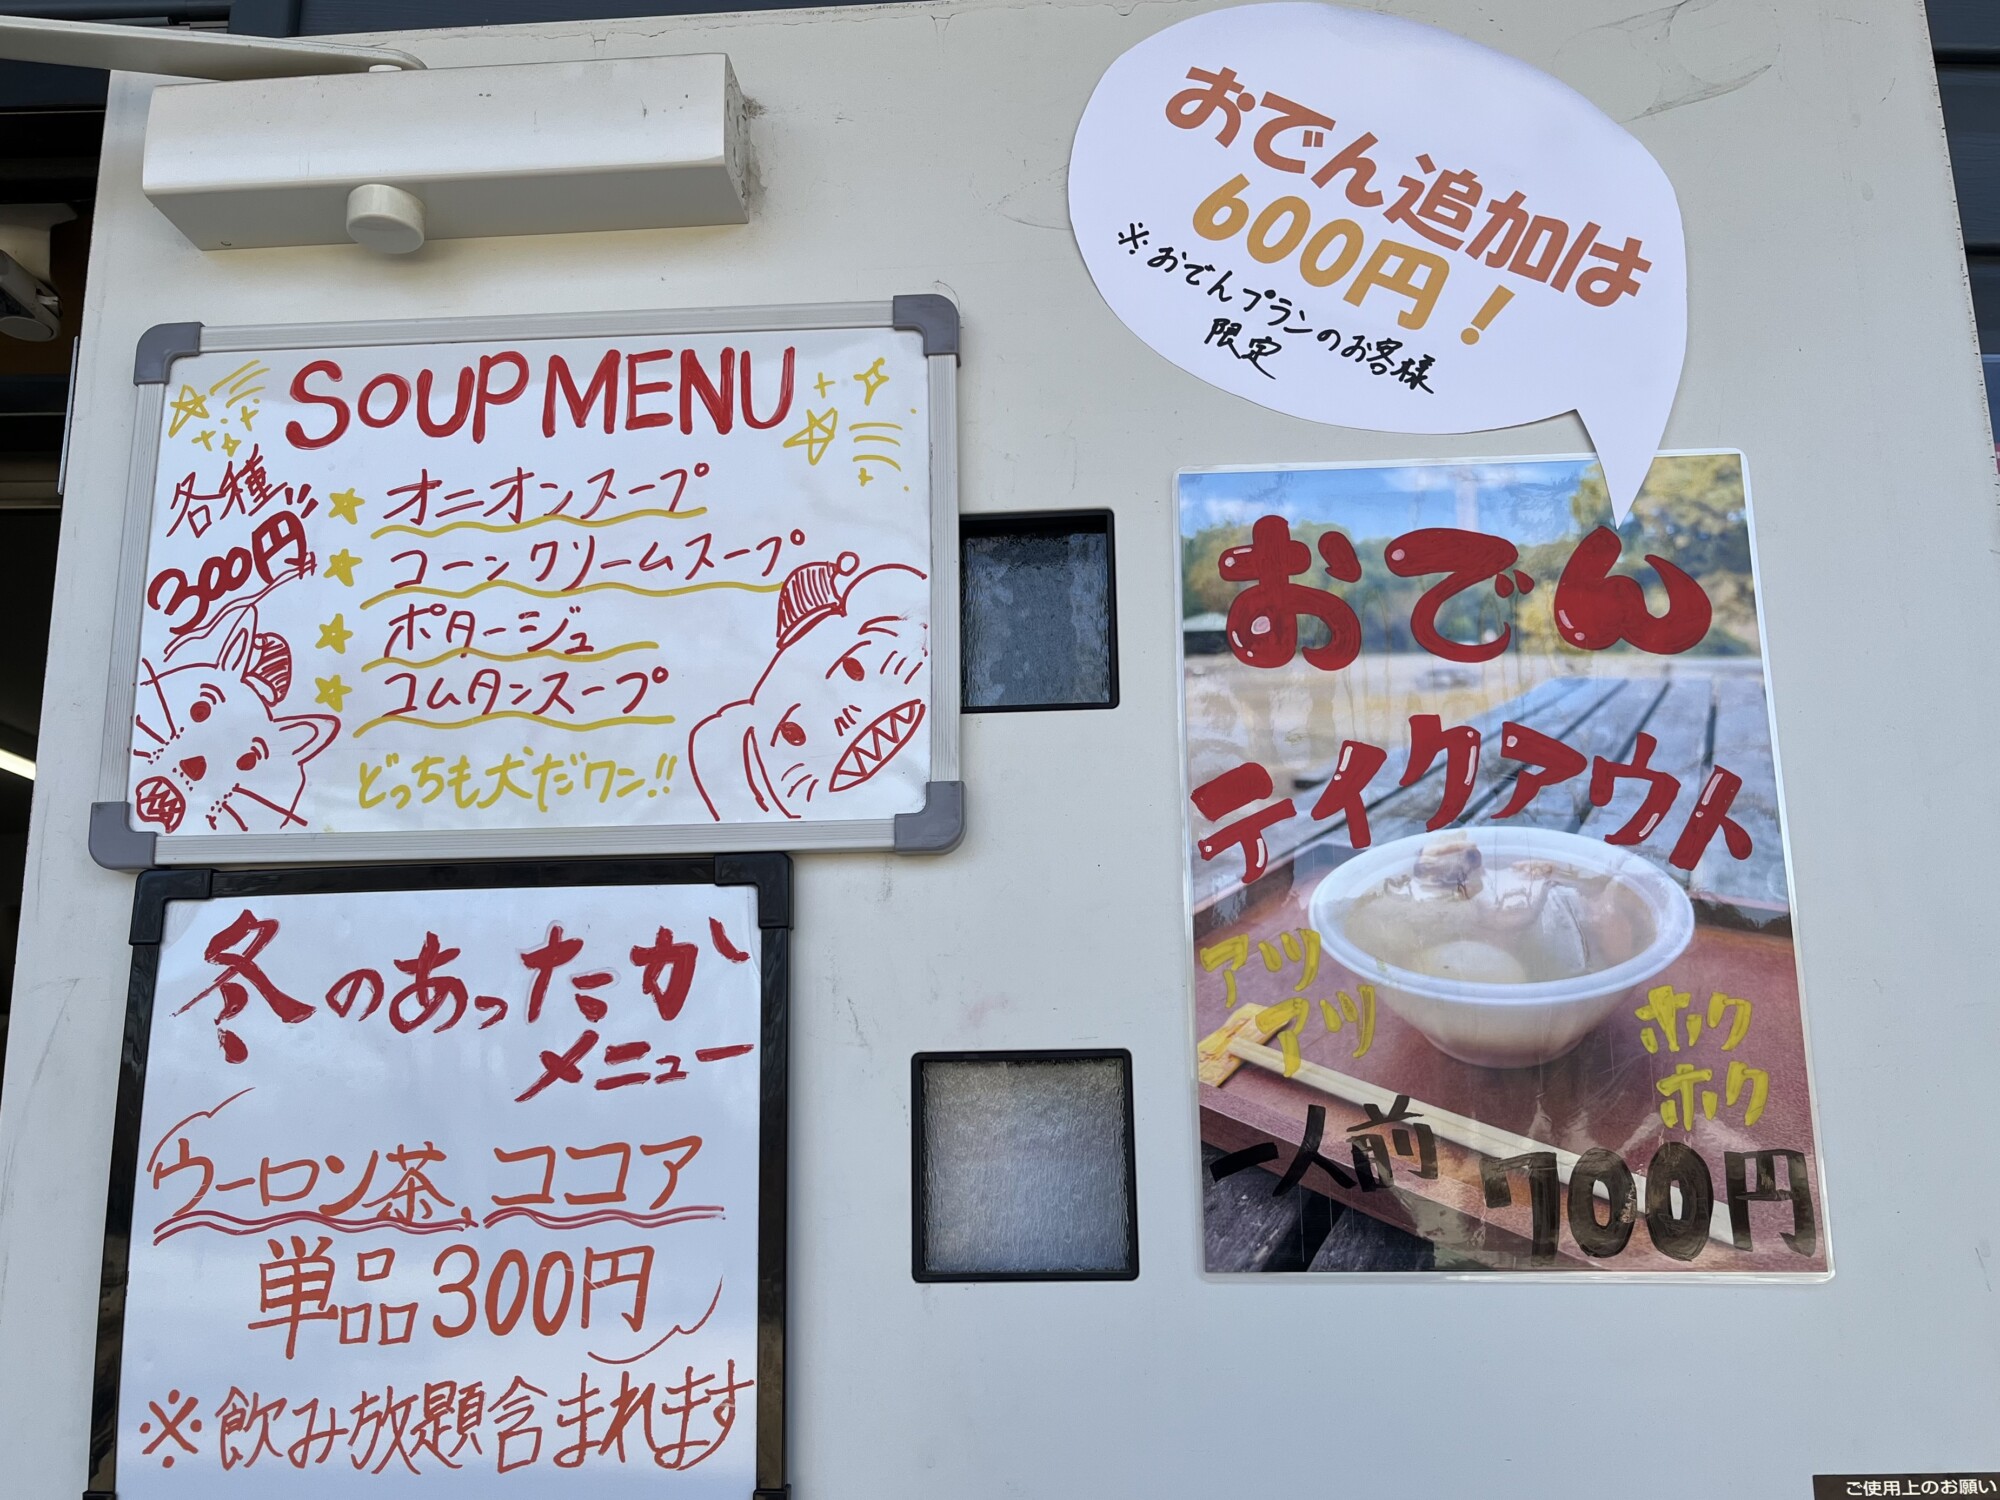 おでん追加は
600円！
※おでんプランのお客様
限定
SOUP MENU
各種
300円
オニオンスープ
コーンクリームスープ
ポタージュ
コムタンスープ
どっちも犬だワン!!
おでん
テイクアウト
アツ
アツ
ホク
ホク
一人前 700円
冬のあったか
メニュー
ウーロン茶、ココア
単品300円
※飲み放題含まれます
ご使用上のお願い